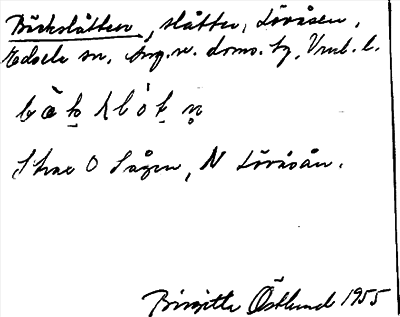 Bäckslåtten, slåtter, Lövåsen,
Edsele sn, Ång.m. doms. tg, Vnl. l.
Strax O Sågen, N Lövåsån.
Birgitta Östlund 1955